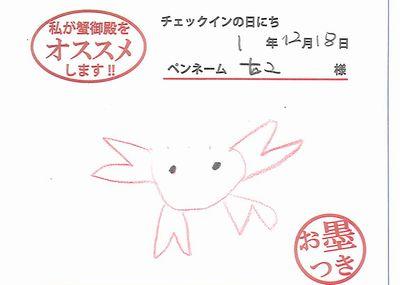 私が蟹御殿を
オススメ
します!!
チェックインの日にち
1 年 12月 18日
ペンネーム 様
お墨
つき